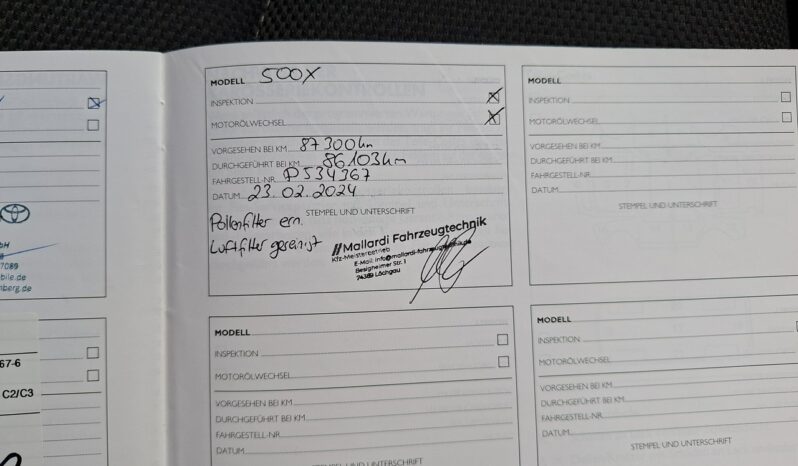 7089
bile.de
nberg.de
67-6
C2/C3
MODELL 500X
INSPEKTION
MOTORÖLWECHSEL
VORGESEHEN BEI KM 87300km
DURCHGEFÜHRT BEI KM 86103km
FAHRGESTELL-NR. P534367
DATUM 23.02.2024
STEMPEL UND UNTERSCHRIFT
Pollenfilter ern.
Luftfilter gereinigt
Mallardi Fahrzeugtechnik
Kfz-Meisterbetrieb
E-Mail: info@mallardi-fahrzeugtechnik.de
Besigheimer Str. 1
74369 Löchgau
MODELL
INSPEKTION
MOTORÖLWECHSEL
VORGESEHEN BEI KM
DURCHGEFÜHRT BEI KM
FAHRGESTELL-NR.
DATUM
STEMPEL UND UNTERSCHRIFT
MODELL
INSPEKTION
MOTORÖLWECHSEL
VORGESEHEN BEI KM
DURCHGEFÜHRT BEI KM
FAHRGESTELL-NR.
DATUM
STEMPEL UND UNTERSCHRIFT
MODELL
INSPEKTION
MOTORÖLWECHSEL
VORGESEHEN BEI KM
DURCHGEFÜHRT BEI KM
FAHRGESTELL-NR.
DATUM
STEMPEL UND UNTERSCHRIFT